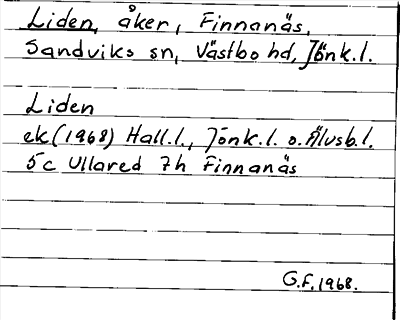 Liden, åker, Finnanäs,
Sandviks sn, Västbo hd, Jönk.l.
Liden
ek (1968) Hall.l., Jönk.l. o. Älvsb.l.
5c Ullared 7h Finnanäs
G.F. 1968.